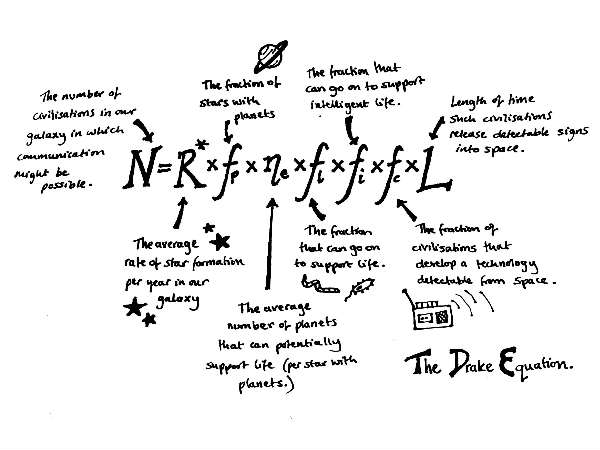 The number of
civilisations in our
galaxy in which
communication
might be
possible.
The fraction of
stars with
planets
The fraction that
can go on to support
intelligent life.
Length of time
such civilisations
release detectable signs
into space.
N = R* × fp × ne × fl × fi × fc × L
The average
rate of star formation
per year in our
galaxy
The average
number of planets
that can potentially
support life (per star with
planets.)
The fraction
that can go on
to support life.
The fraction of
civilisations that
develop a technology
detectable from space.
The Drake Equation.